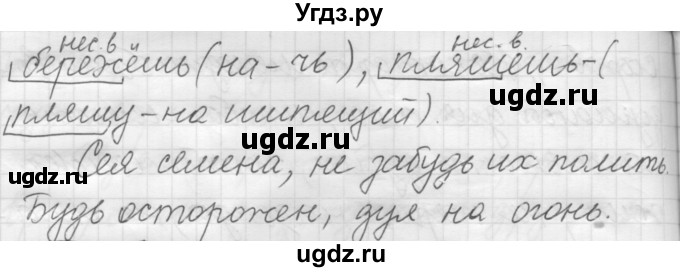 Угдз.ру
нес. в нес. в.
бережёшь (на-чь), пляшешь-(
пляшу-на шипящий).
Сея семена, не забудь их полить.
Будь осторожен, дуя на огонь.
ugdz.ru ugdz.ru ugdz.ru
ugdz.ru ugdz.ru